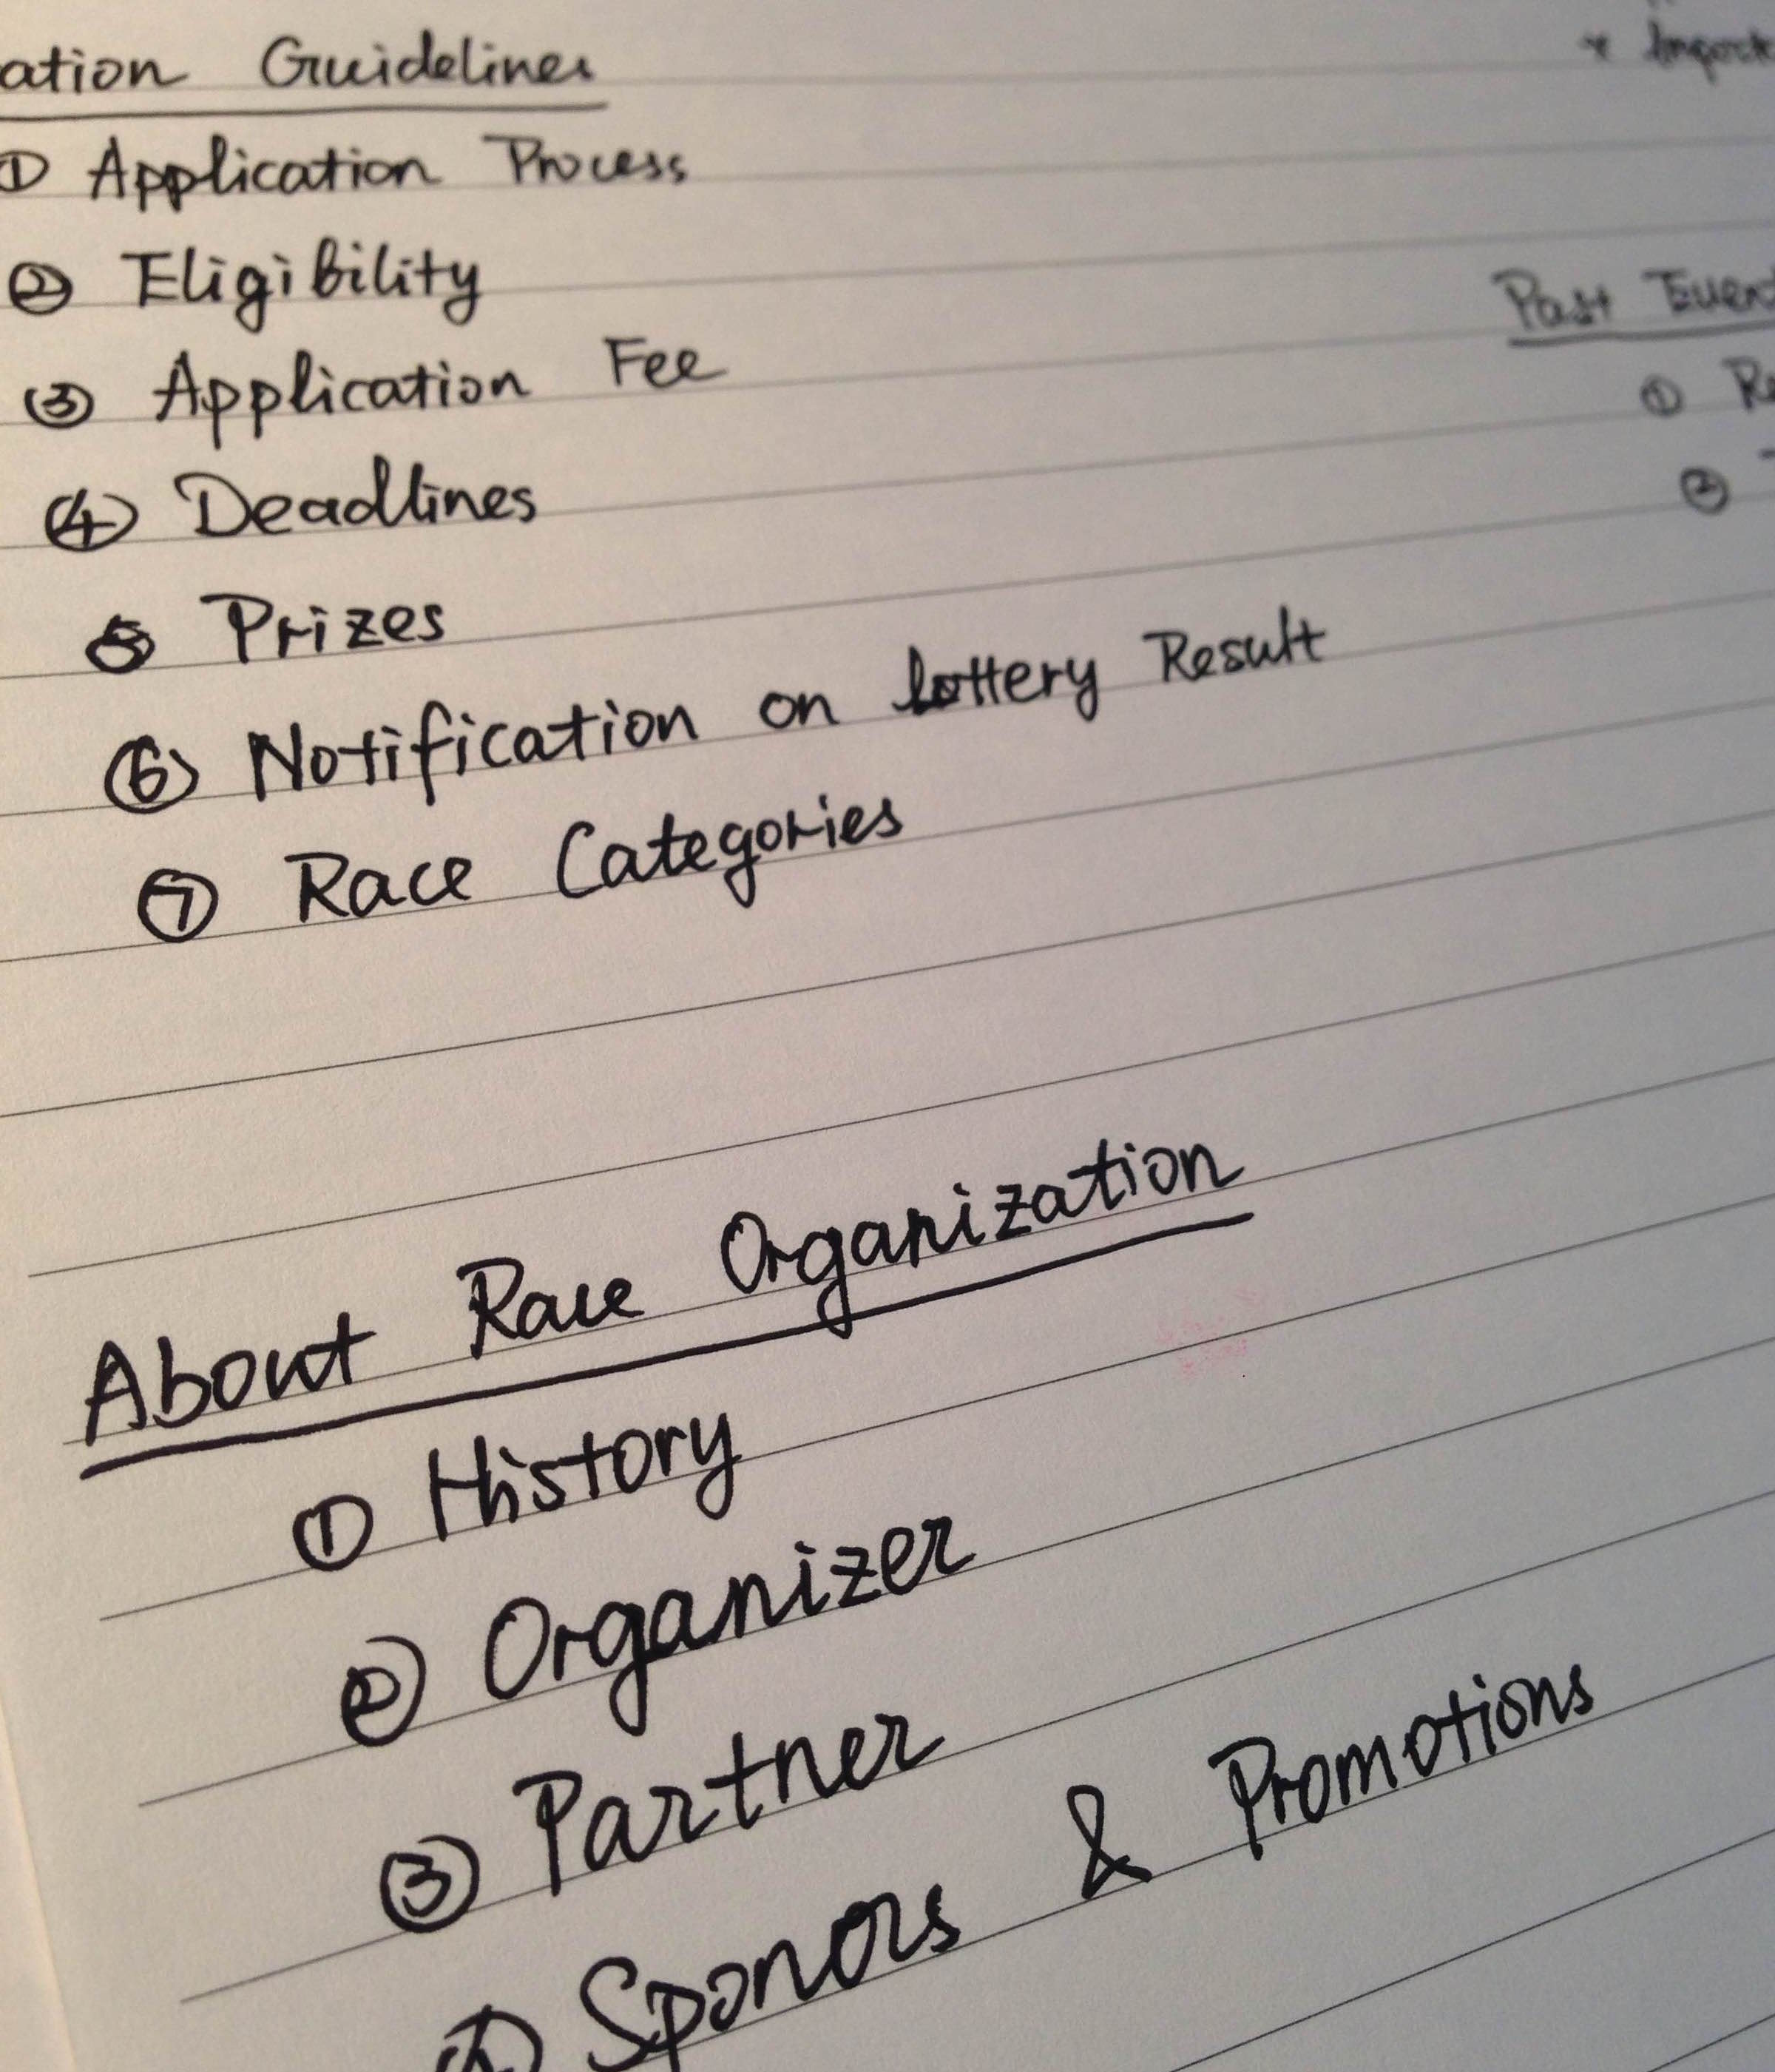 ation Guidelines
① Application Process
② Eligibility
③ Application Fee
④ Deadlines
⑤ Prizes
⑥ Notification on lottery Result
⑦ Race Categories
About Race Organization
① History
② Organizer
③ Partner
④ Sponors & Promotions
* Import
Past Event
① Re
②